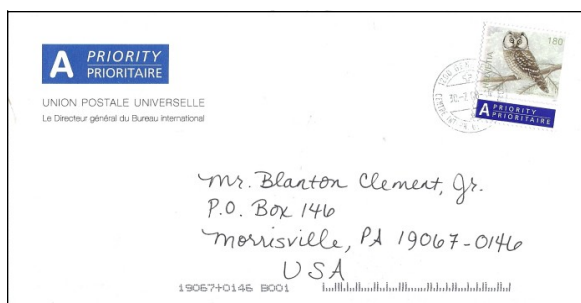 A PRIORITY
PRIORITAIRE
UNION POSTALE UNIVERSELLE
Le Directeur général du Bureau international
180
A PRIORITY
PRIORITAIRE
Mr. Blanton Clement, Jr.
P.O. Box 146
Morrisville, PA 19067-0146
USA
19067+0146 B001